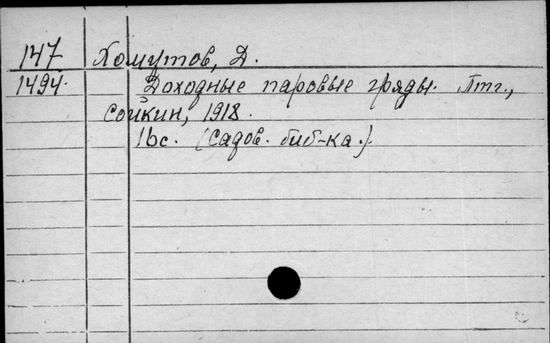 147 Хомутов, Д.
1494. Доходные паровые гряды. Птг.,
Сойкин, 1918.
16с. (Садов. биб-ка.).